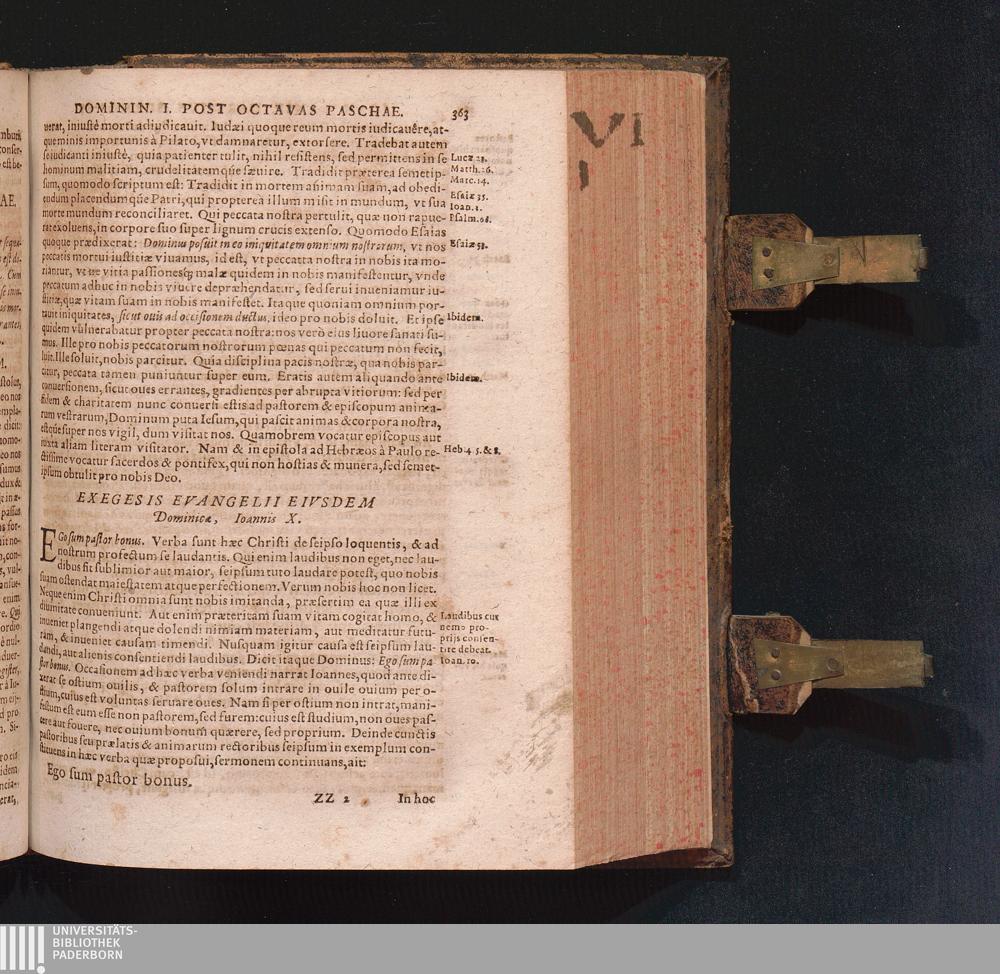 DOMININ. I. POST OCTAVAS PASCHAE. 363
uerat, iniustè morti adiudicauit. Iudæi quoque reum mortis iudicauêre, at-
que minis importunis à Pilato, vt damnaretur, extorsere. Tradebat autem
se iudicanti iniustè, quia patienter tulit, nihil resistens, sed permittens in se
hominum malitiam, crudelitatemqúe sæuire. Tradidit præterea semetip-
sum, quomodo scriptum est: Tradidit in mortem animam suam, ad obedi-
endum placendumqúe Patri, qui propterea illum misit in mundum, vt sua
morte mundum reconciliaret. Qui peccata nostra pertulit, quæ non rapue-
rat exoluens, in corpore suo super lignum crucis extenso. Quomodo Esaias
quoque prædixerat: Dominus posuit in eo iniquitatem omnium nostrorum, vt nos
peccatis mortui iustitiæ viuamus, id est, vt peccatta nostra in nobis ita mo-
riantur, vt ne vitia passionesq; malæ quidem in nobis manifestentur, vnde
peccatum adhuc in nobis viuere depræhendatur, sed serui inueniamur iu-
stitiæ, quæ vitam suam in nobis manifestet. Itaque quoniam omnium por-
tauit iniquitates, sicut ouis ad occisionem ductus, ideo pro nobis doluit. Et ipse
quidem vulnerabatur propter peccata nostra: nos verò eius liuore sanati su-
mus. Ille pro nobis peccatorum nostrorum pœnas qui peccatum non fecit,
luit. Ille soluit, nobis parcitur. Quia disciplina pacis nostræ, qua nobis par-
citur, peccata tamen puniuntur super eum. Eratis autem aliquando ante
conuersionem, sicut oues errantes, gradientes per abrupta vitiorum: sed per
fidem & charitatem nunc conuersi estis ad pastorem & episcopum anima-
rum vestrarum, Dominum puta Iesum, qui pascit animas & corpora nostra,
estque super nos vigil, dum visitat nos. Quamobrem vocatur episcopus aut
iuxta aliam literam visitator. Nam & in epistola ad Hebræos à Paulo re-
ctissime vocatur sacerdos & pontifex, qui non hostias & munera, sed semet-
ipsum obtulit pro nobis Deo.
Lucæ 23.
Matth. 26.
Marc. 14.
Esaiæ 35.
Ioan. 1.
Psalm. 68.
Esaiæ 53.
Ibidem.
Ibidem.
Heb. 4. 5. & 8.
EXEGESIS EVANGELII EIVSDEM
Dominicæ, Ioannis X.
EGo sum pastor bonus. Verba sunt hæc Christi de seipso loquentis, & ad
nostrum profectum se laudantis. Qui enim laudibus non eget, nec lau-
dibus fit sublimior aut maior, seipsum tuto laudare potest, quo nobis
suam ostendat maiestatem atque perfectionem. Verum nobis hoc non licet.
Neque enim Christi omnia sunt nobis imitanda, præsertim ea quæ illi ex
diuinitate conueniunt. Aut enim præteritam suam vitam cogitat homo, &
inueniet plangendi atque dolendi nimiam materiam, aut meditatur futu-
ram, & inueniet causam timendi. Nusquam igitur causa est seipsum lau-
dandi, aut alienis consentiendi laudibus. Dicit itaque Dominus: Ego sum pa
stor bonus. Occasionem ad hæc verba veniendi narrat Ioannes, quod ante di-
xerat se ostium ouilis, & pastorem solum intrare in ouile ouium per o-
stium, cuius est voluntas seruare oues. Nam si per ostium non intrat, mani-
festum est eum esse non pastorem, sed furem: cuius est studium, non oues pas-
cere aut fouere, nec ouium bonum quærere, sed proprium. Deinde cunctis
pastoribus seu prælatis & animarum rectoribus seipsum in exemplum con-
stituens in hæc verba quæ proposui, sermonem continuans, ait:
Laudibus cur
nemo pro-
prijs consen-
tire debeat.
Ioan. 10.
Ego sum pastor bonus.
ZZ 2 In hoc
VI
UNIVERSITÄTS-
BIBLIOTHEK
PADERBORN